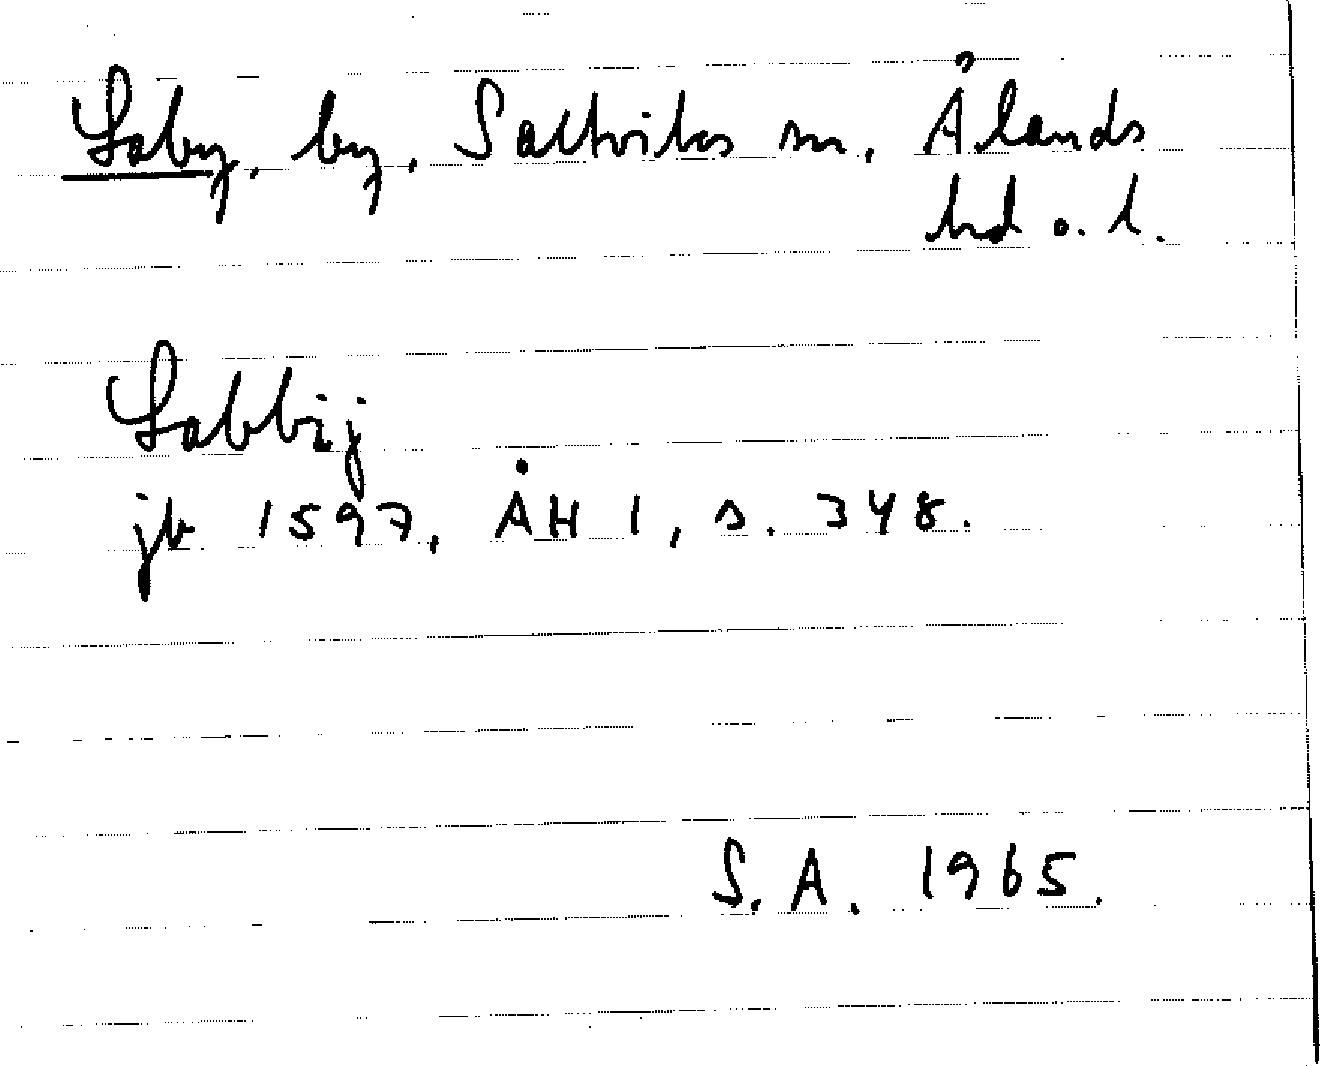 Laby, by, Saltviks sn, Ålands
hd o. l.
Labbij
jb 1597, ÅH 1, s. 348.
S. A. 1965.